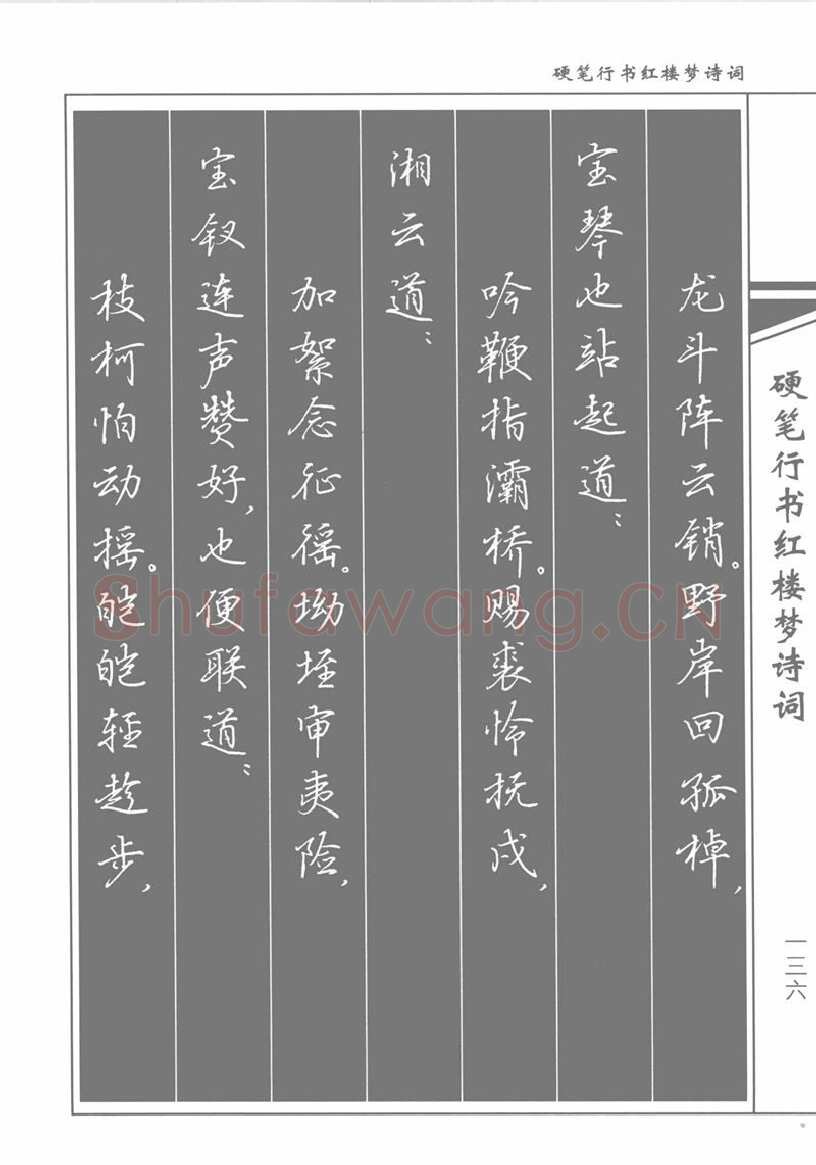 硬笔行书红楼梦诗词
龙斗阵云销。野岸回孤棹，
宝琴也站起道：
吟鞭指灞桥。赐裘怜抚戍，
湘云道：
加絮念征徭。坳垤审夷险，
宝钗连声赞好，也便联道：
枝柯怕动摇。皑皑轻趁步，
硬笔行书红楼梦诗词
一三六
Shufawang.CN